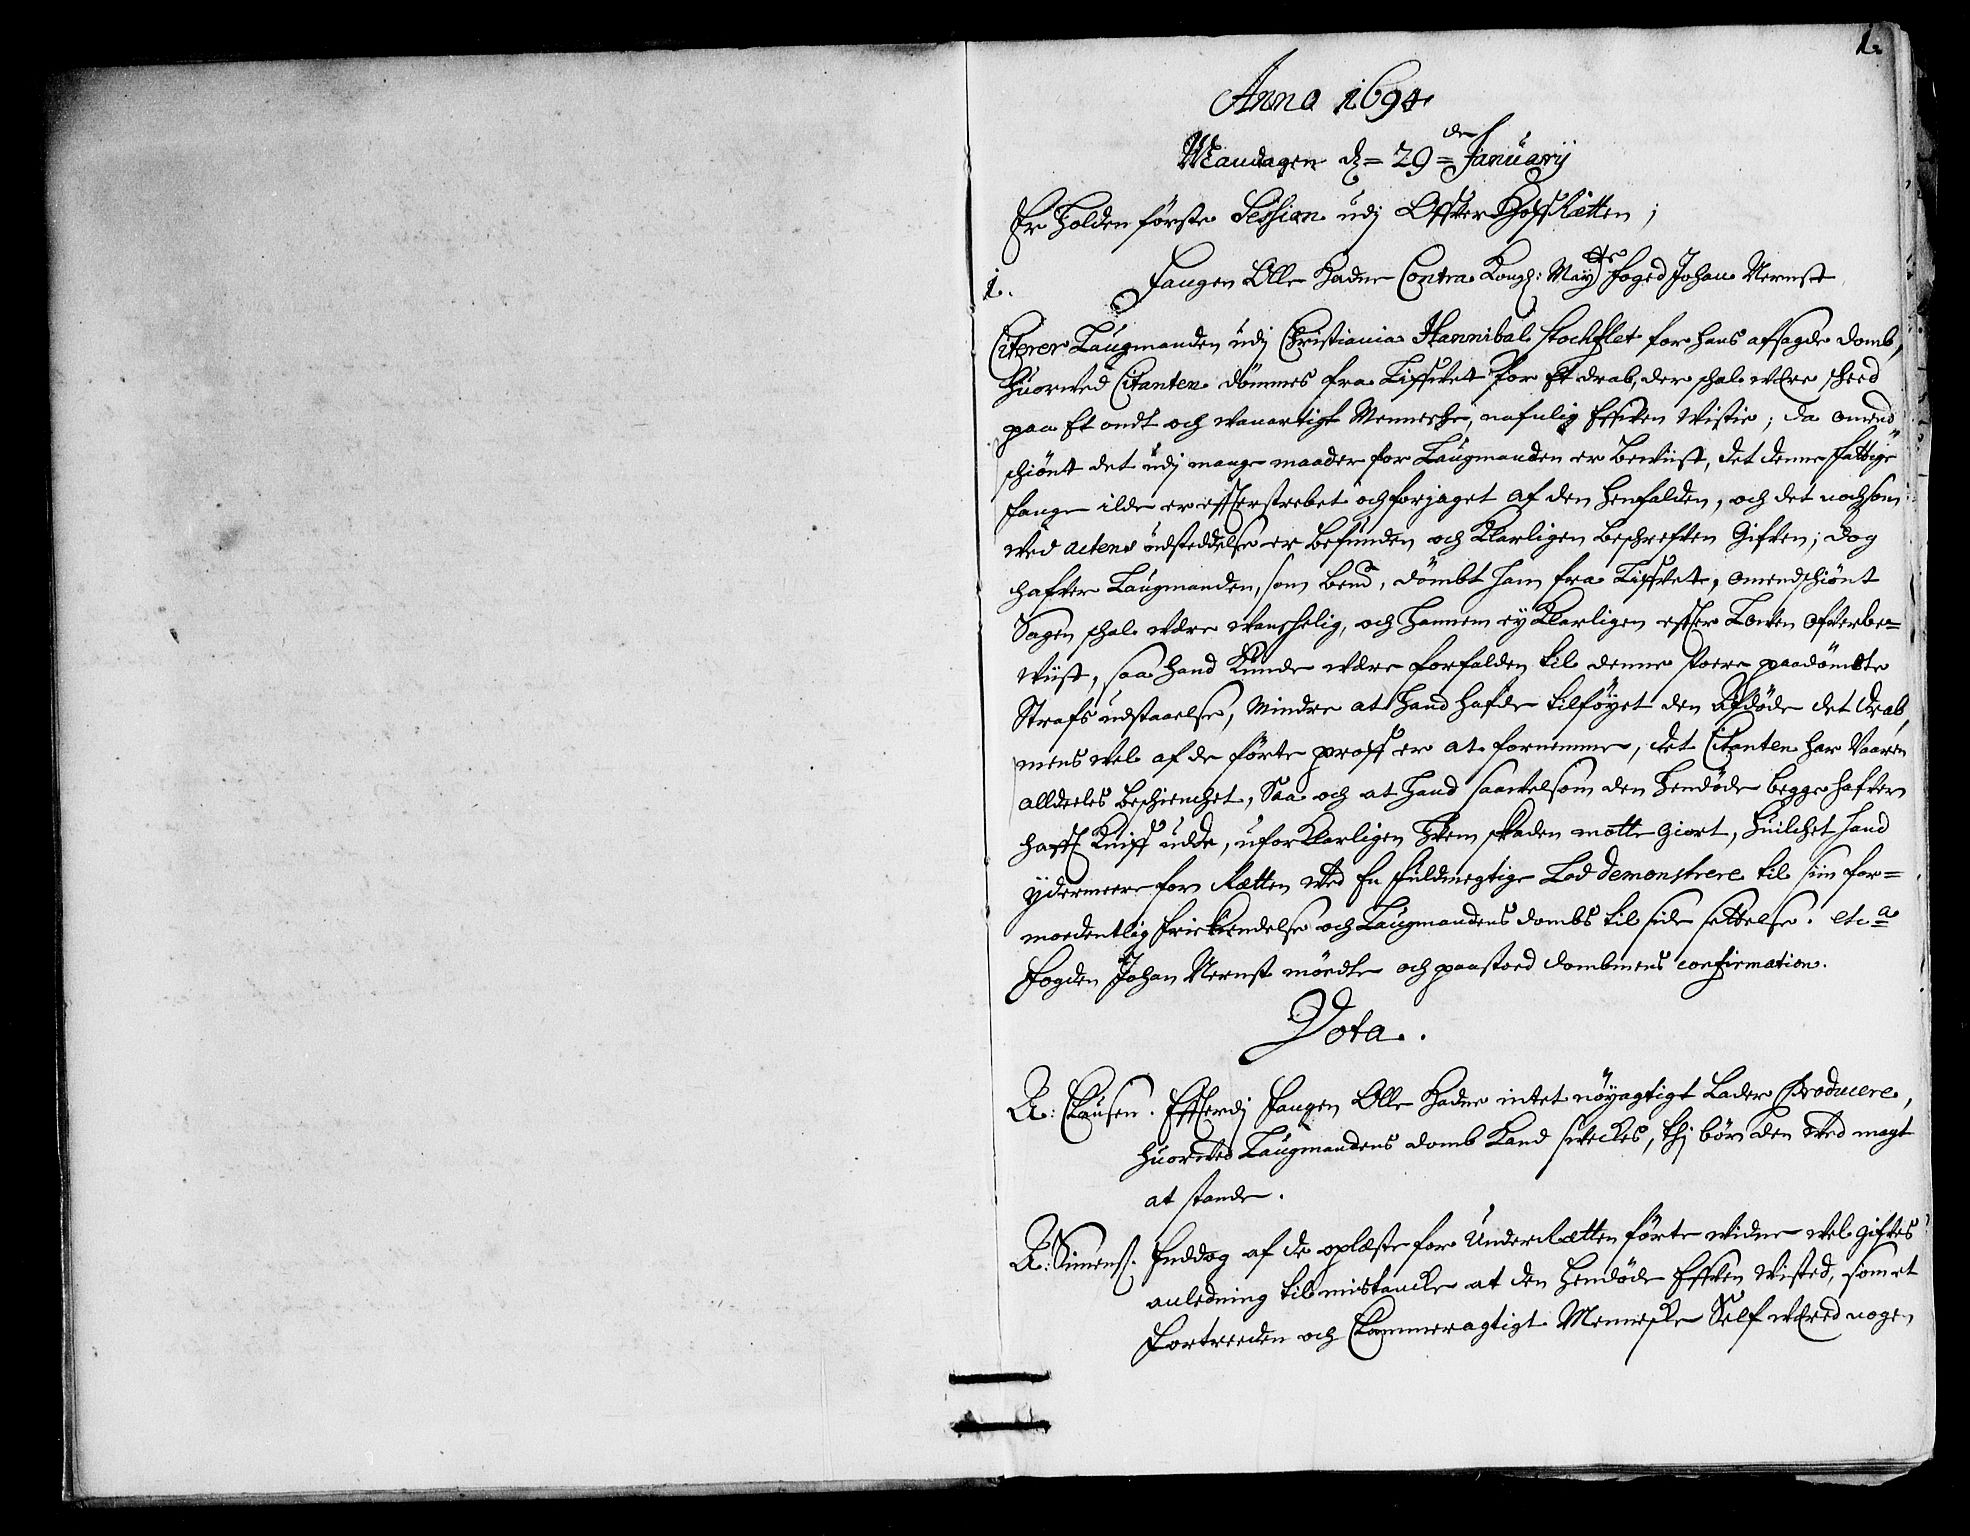 1.
Anno 1694
Mandagen d. 29de January
Er holden første Session udj Offver Hoff Rætten;
1. Fangen Olle Hadne Contra Kongl: Maytts foged Johan Nernst
Citerer Laugmanden udj Christiania Hannibal Stochflet for hans afsagde domb,
huorved Citanten dömmes fra Liffvet for Et drab, der schal være scheed
paa Et ondt och vanartigt Mennesche, nafnlig Effven Wistie; da omend
schiönt det udj mange maader for Laugmanden er bewiist, det denne fattige
fange ilde er effterstrebet och forjaget af den henfalden, och det nochsom
ved actens udsteddelse er befunden och klarligen beschreffven Gifven; dog
hafver Laugmanden, som bemt, dömbt ham fra Liffvet, omendschiönt
Sagen schal være vanschelig, och hannem ey klarligen effter Lowen ofverbe=
viist, saa hand kunde være forfalden til denne store paadömbte
Strafs udstaaelse, Mindre at hand hafde tilföyet den afdöde det drab,
mens vel af de förte proff er at fornemme, det Citanten har vaaren
alldeeles beschienchet, Saa och at hand saavelsom den hendöde begge hafver
hafft Kniff udde, uforklarligen hvem skaden motte giort, huilchet hand
ydermeere for Rætten ved En fuldmegtige Lod demonstrere til sin for=
moedentlig frickiendelse och Laugmandens dombs til side settelse. etca
Fogden Johan Nernst mördte och paastoed dombmens confirmation.
Vota.
A: Clausen. Effterdj fangen Olle Hadne intet nöyagtigt Lader Producere,
huorved Laugmandens domb kand sveckes, thj bör den ved magt
at stande.
A: Simens. Enddog af de oplæste for UnderRætten förte widne vel gifves
anledning til mistancke at den hendöde Effven Wisted, som et
fortreeden och klammeragtigt Menniske Self vered nogen